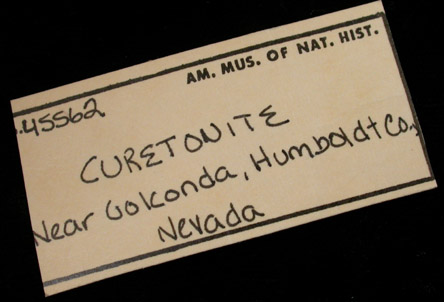 AM. MUS. OF NAT. HIST.
.45562
CURETONITE
Near Golconda, Humboldt Co.,
Nevada